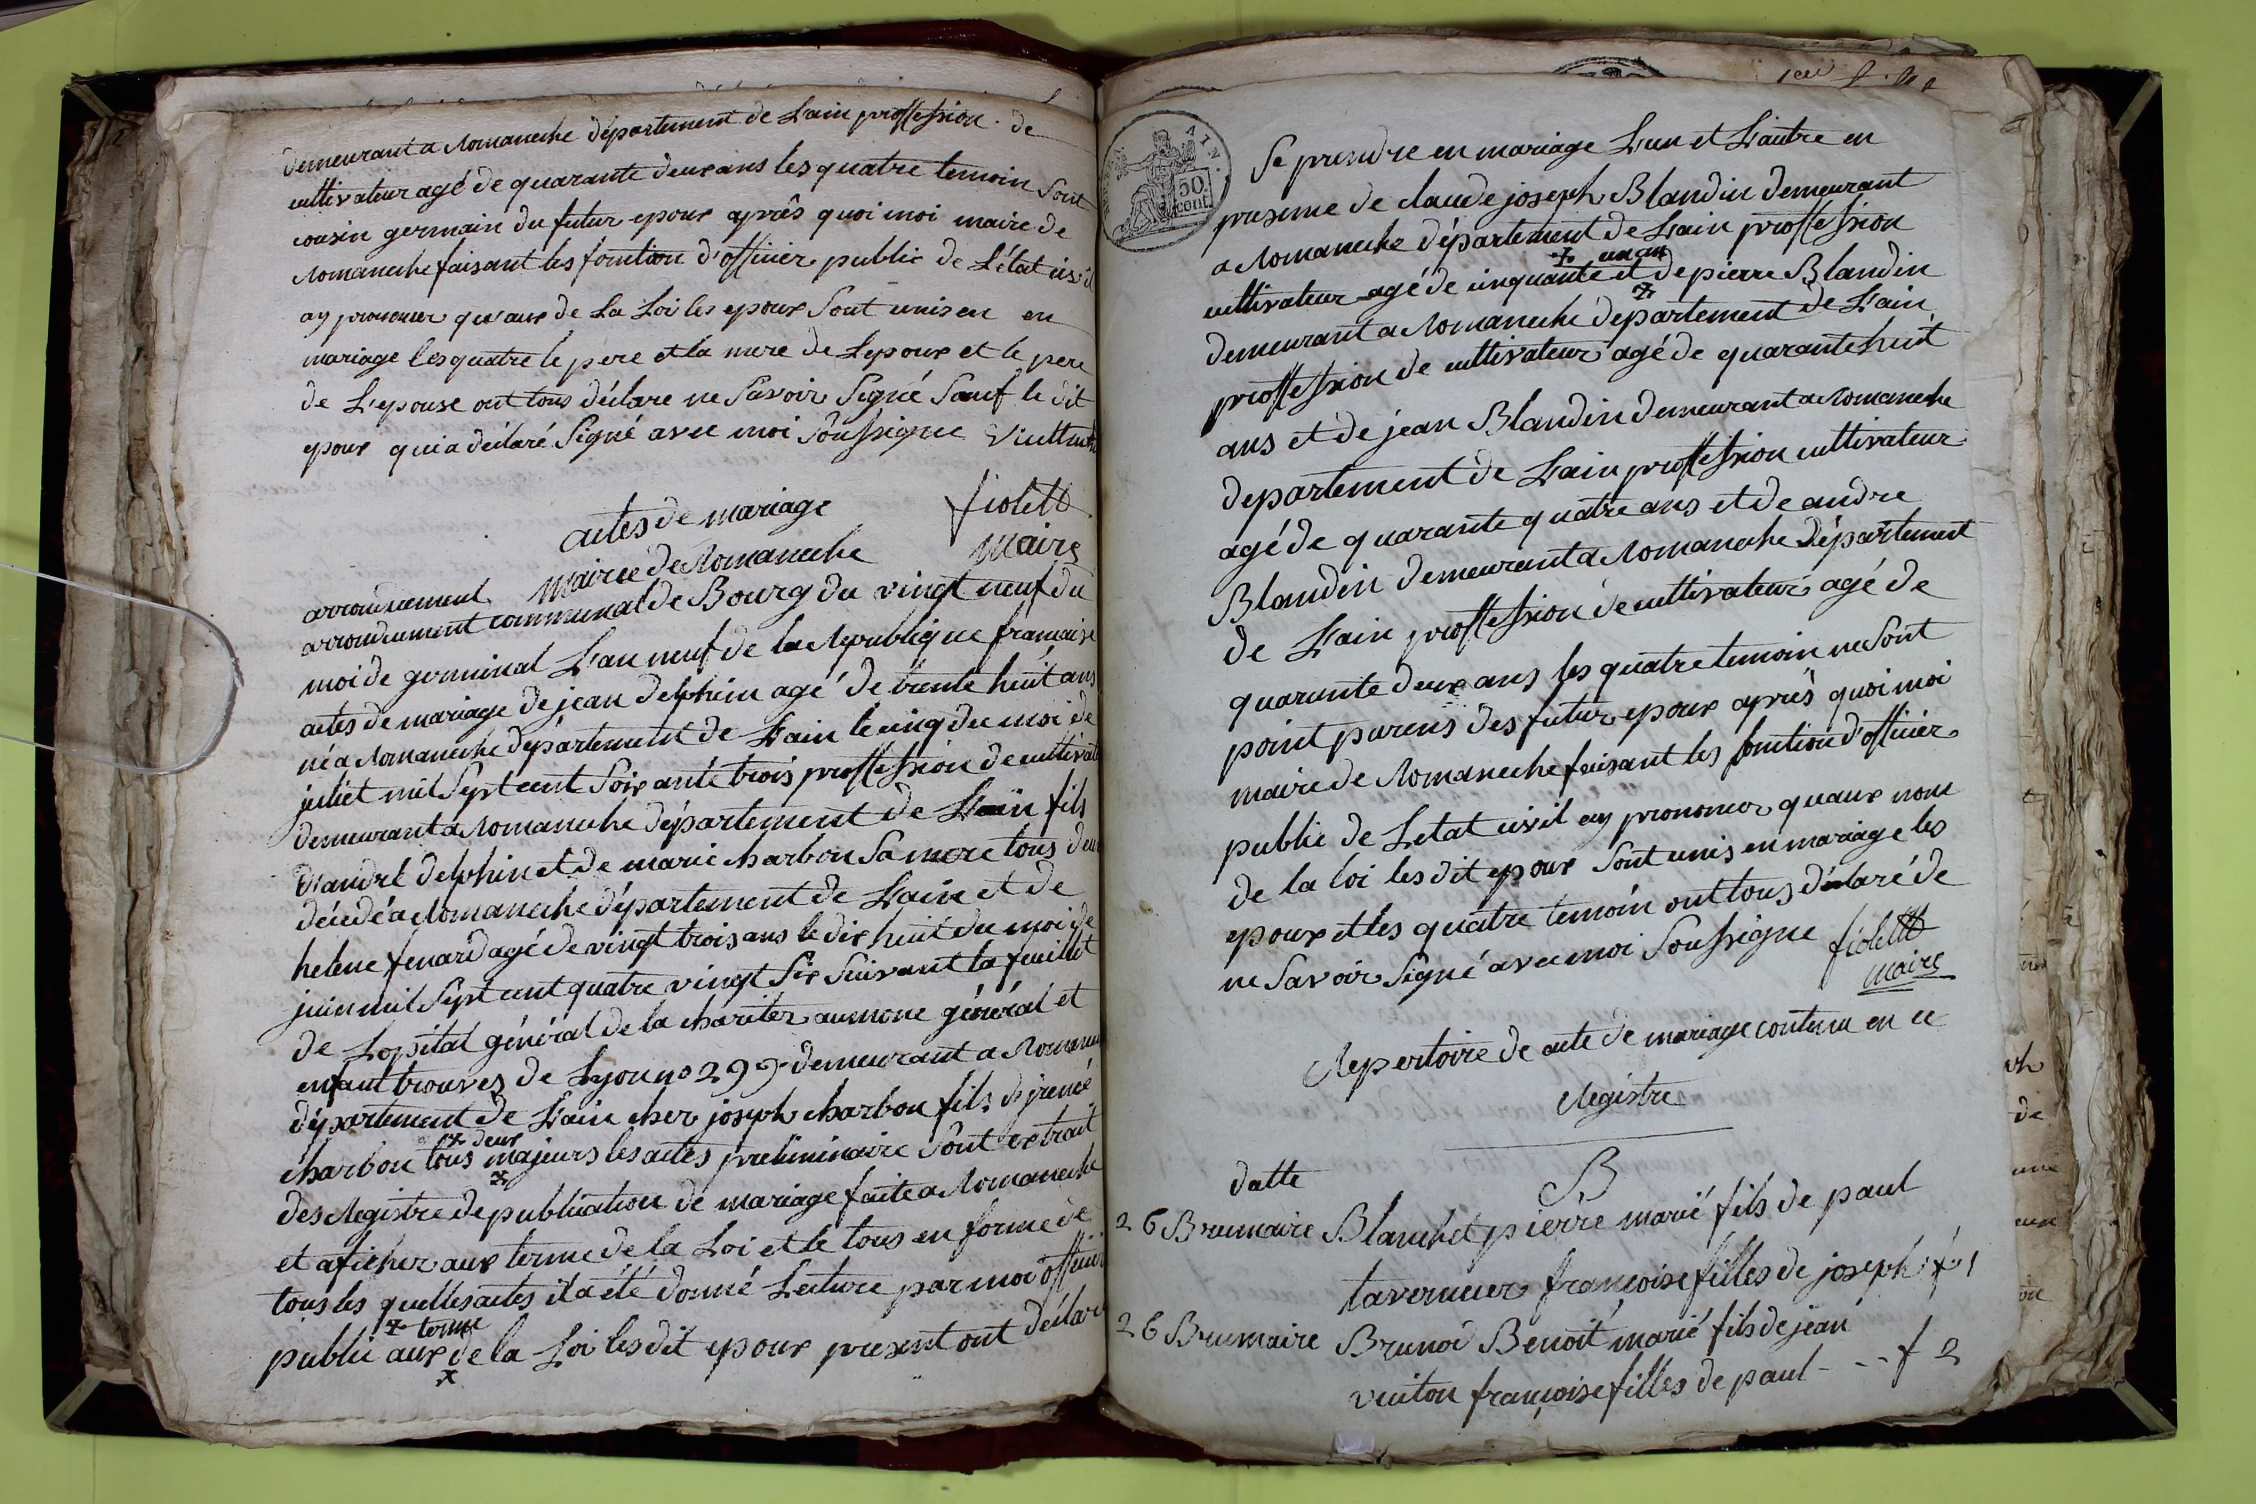 demeurant a Romaneche département de Lain proffession de
cultivateur agé de quarante deux ans les quatre temoin sont
cousin germain du futur epoux après quoi moi maire de
Romaneche faisant les fonction d'officier public de L'état civil
ay prononcer qu'aux de La Loi les epoux sont unis en en
mariage les quatre le pere et la mere de Lepoux et le pere
de L'epouse ont tous déclare ne savoir signé sauf le dit
epoux qui a déclaré signé avec moi soussigne
fiolett
maire
actes de mariage
Mairee de Romaneche
arrondicement
arrondicement communal de Bourg du vingt neuf du
moi de germinal L'an neuf de la Republique française
actes de mariage de jean delphin agé de trente huit ans
né a Romaneche département de Lain le cinq du moi de
juliet mil sept cent soixante trois proffession de cultivat
demeurant a Romaneche département de Lain fils
d'andré delphin et de marie charbon sa mere tous deux
décedé a Romaneche département de Lain et de
helene fenard agé de vingt trois ans le dix huit du moi de
juin mil sept cent quatre vingt six suivant la feuillet
de Lopital général de la chariter aumone général et
enfant trouves de Lyon no 299 demeurant a Romanec
département de Lain cher joseph charbon fils de
charbon tous majeurs les actes preliminaire sont extrait
+ deux +
des Registre de publication de mariage faite a Romaneche
et aficher aux terme de la Loi et le tous en forme de
tous les quelles actes il a été donné Lecture par moi officier
public aux de la Loi les dit epoux present ont déclare
+ terme
x
AIN
50
cent.
Se prendre en mariage L'un et L'autre en
presence de claude joseph Blandin demeurant
a Romaneche département de Lain proffession
+ un an
cultivateur agé de cinquante et de pierre Blandin
+
demeurant a Romaneche département de Lain
proffession de cultivateur agé de quarante huit
ans et de jean Blandin demeurant a Romaneche
departement de Lain proffession cultivateur
agé de quarante quatre ans et de andre
Blandin demeurant a Romaneche département
de Lain proffession de cultivateur agé de
quarante deux ans les quatre temoin ne sont
point parens des futur epoux après quoi moi
maire de Romaneche faisant les fonction d'officier
public de Letat civil ay prononcer quaux nom
de la loi les dit epoux sont unis en mariage les
epoux et les quatre temoin ont tous déclaré de
ne savoir signé avec moi soussigne fiolett
maire
Repertoire de acte de mariage contenu en ce
Registre
datte B
26 Brumaire Blanchet pierre marié fils de paul
tavernier françoise filles de joseph f 1
26 Brumaire Brunod Benoit marié fils de jean
vuiton françoise filles de paul - - - f 2